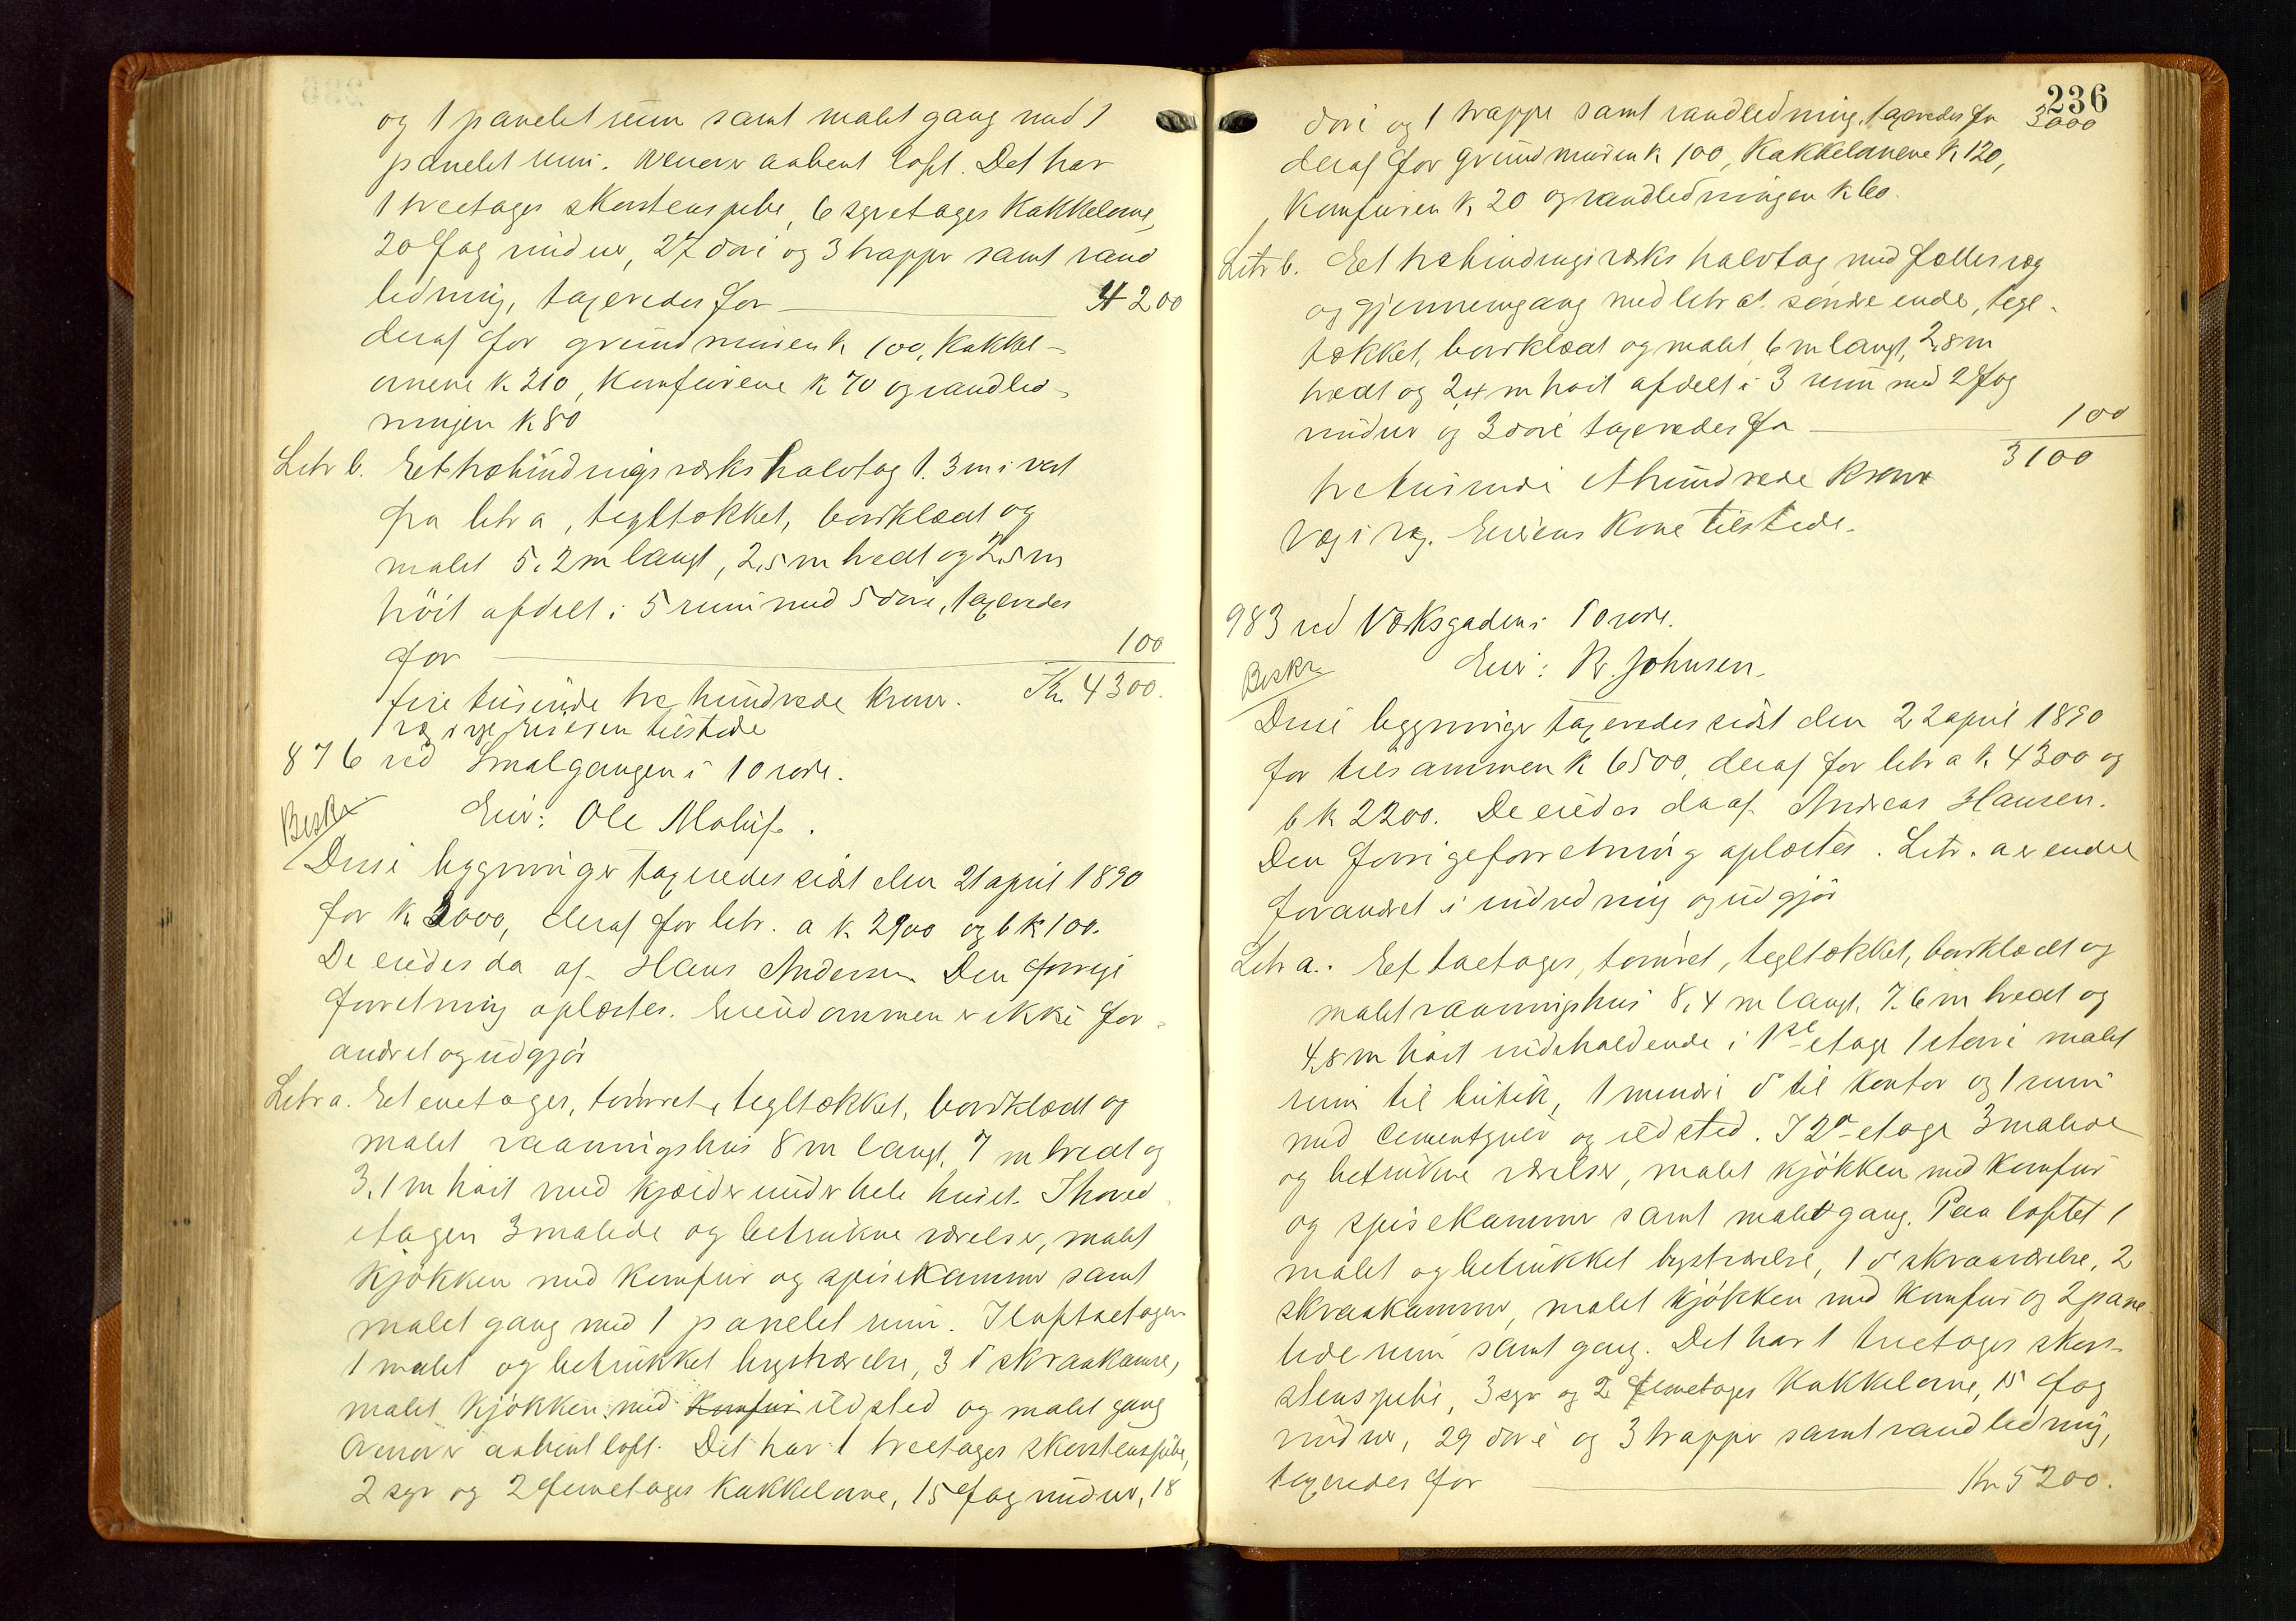 og 1 panelet rum samt malet gang med 1
panelet rum. Ovenover aabent loft. Det har
1 treetages skorstenspibe, 6 syretages kakkelovne,
20 fag vinduer, 27 döre og 3 trapper samt vand
ledning, taxeredes for 4200
deraf for grundmuren k 100, kakkel-
ovnene k 210, komfurene k 70 og vandled-
ningen k 80
Litr b. Et træbindingsværks halvtag 1.3 m i vest
fra litr a, tegltækket, bordklædt og
malet 5,2 m langt, 2,5 m bredt og 2,5 m
höit afdelt i 5 rum med 5 döre, taxeredes
for 100
fire tusinde tre hundrede kroner. Kr. 4300.
Eieren tilstede
876 ved Smalgangen i 10 rode.
Beskr Eier: Ole Maluf.
Disse bygninger taxeredes sidst den 21 april 1890
for k. 3000, deraf for litr. a k. 2900 og b k 100.
De eiedes da af Hans Andersen Den forrige
forretning oplæstes. Eiendommen er ikke for-
andret og udgjör
Litr a. Et enetages, tömret, tegltækket, bordklædt og
malet vaaningshus 8 m langt, 7 m bredt og
3,1 m höit med kjælder under hele huset. I hoved
etagen 3 malede og betrukne værelser, malet
kjökken med komfur og spisekammer samt
malet gang med 1 panelet rum. I loftsetagen
1 malet og betrukket kvistværelse, 3 do skraakamre,
malet kjökken med komfur ildsted og malet gang
Ovenover aabent loft. Det har 1 treetages skorstenspibe,
2 syv og 2 femetages kakkelovne, 15 fag vinduer, 18
236
döre og 1 trappe samt vandledning, taxeredes for 3000
deraf for grundmuren k 100, kakkelovnene k 120,
komfuren k 20 og vandledningen k 60.
Litr b. Et træbindingsværks halvtag med fælles væg
og gjennemgang med litr a's söndre ende, tegl-
tækket, bordklædt og malet 6 m langt, 2,8 m
bredt og 2,4 m höit afdelt i 3 rum med 2 fag
vinduer og 3 döre taxeredes for 100
3100
tre tusinde et hundrede kroner
Væg i væg. Eierens kone tilstede.
983 ved Værksgaden i 10 rode.
Beskr Eier: R. Johnsen.
Disse bygninger taxeredes sidst den 22 april 1890
for tilsammen k 6500, deraf for litr a k 4300 og
b k 2200. De eiedes da af Andreas Hansen.
Den forrige forretning oplæstes. Litr. a er endel
forandret i indredning og udgjör
Litr a. Et toetages, tömret, tegltækket, bordklædt og
malet vaaningshus 8,4 m langt, 7,6 m bredt og
4,8 m höit indeholdende i 1ste etage 1 större malet
rum til butik, 1 mindre do til kontor og 1 rum
med cementgulv og ildsted. I 2n etage 3 malede
og betrukne værelser, malet kjökken med komfur
og spisekammer samt malet gang. Paa loftet 1
malet og betrukket kvistværelse, 1 do skraaværelse, 2
skraakammer, malet kjökken med komfur og 2 pane
lede rum samt gang. Det har 1 treetages skor-
stenspibe, 3 syv og 2 femetages kakkelovne, 15 fag
vinduer, 29 döre og 3 trapper samt vandledning,
taxeredes for Kr 5200.